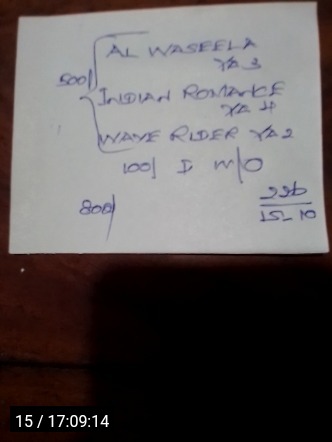 AL WASEELA
YA 3
500/
INDIAN ROMANCE
YA 4
WAVE RIDER YA2
100/ I W/O
800/
15-10
15 / 17:09:14